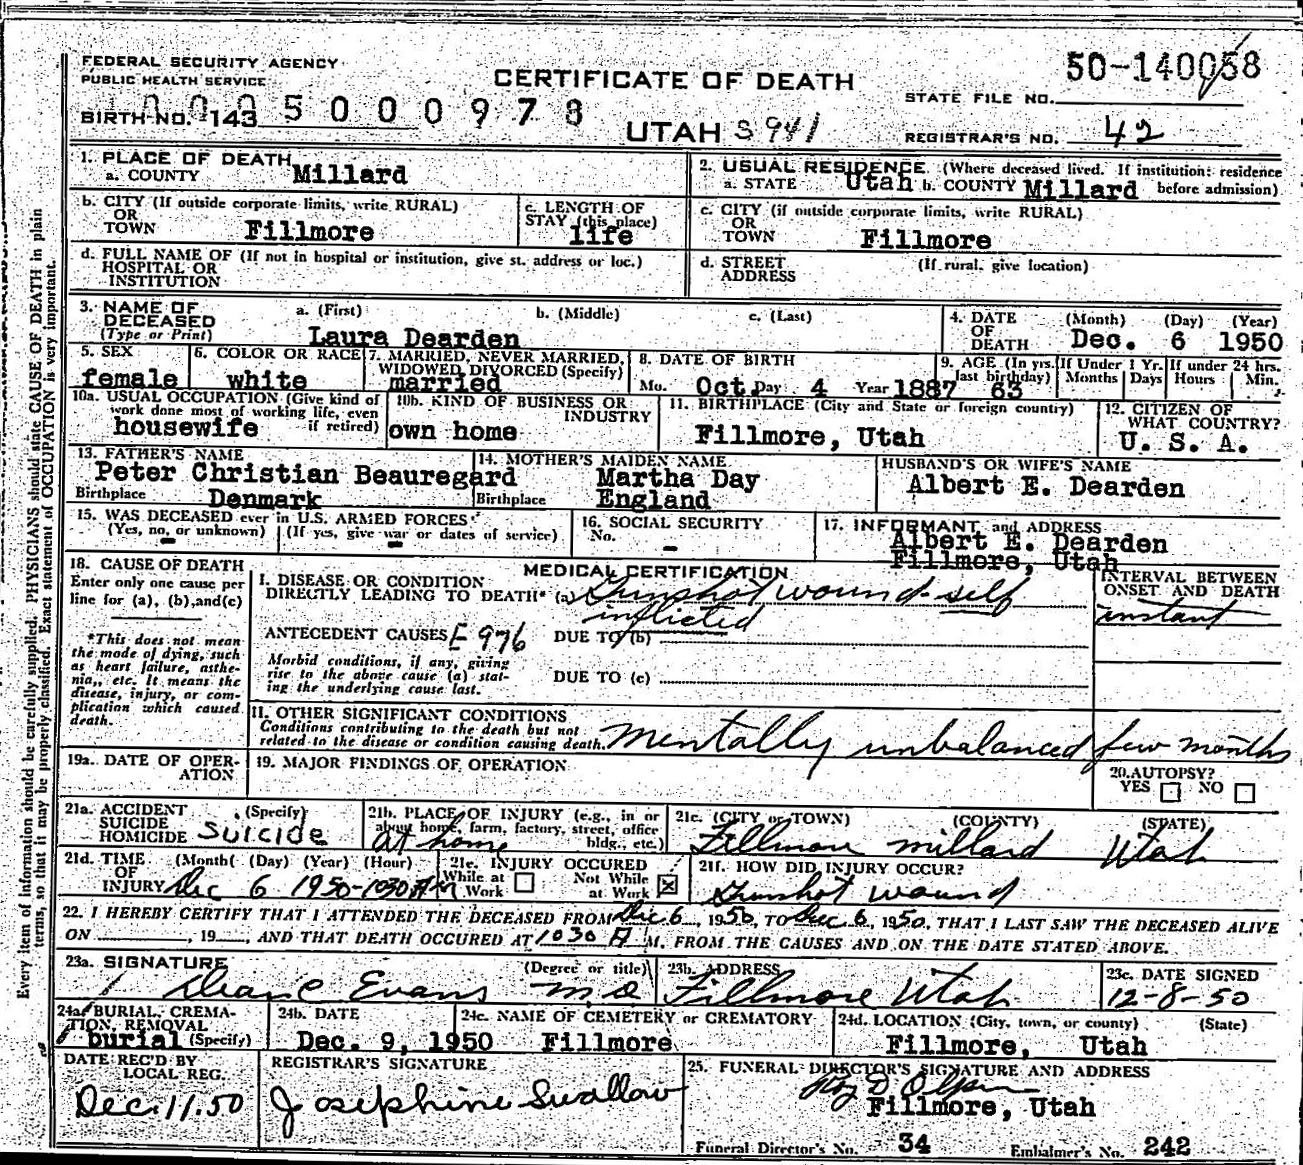 FEDERAL SECURITY AGENCY
PUBLIC HEALTH SERVICE
CERTIFICATE OF DEATH
50-140058
STATE FILE NO.
BIRTH NO. 143 5 0 0 0 9 7 8
UTAH S 941
REGISTRAR'S NO. 42
Every item of information should be carefully supplied. PHYSICIANS should state CAUSE OF DEATH in plain
terms, so that it may be properly classified. Exact statement of OCCUPATION is very important.
1. PLACE OF DEATH
a. COUNTY Millard
2. USUAL RESIDENCE (Where deceased lived. If institution: residence
a. STATE Utah b. COUNTY Millard before admission)
b. CITY (If outside corporate limits, write RURAL)
OR
TOWN Fillmore
c. LENGTH OF
STAY (this place)
life
c. CITY (if outside corporate limits, write RURAL)
OR
TOWN Fillmore
d. FULL NAME OF (If not in hospital or institution, give st. address or loc.)
HOSPITAL OR
INSTITUTION
d. STREET (If rural, give location)
ADDRESS
3. NAME OF a. (First) b. (Middle) c. (Last)
DECEASED
(Type or Print) Laura Dearden
4. DATE (Month) (Day) (Year)
OF
DEATH Dec. 6 1950
5. SEX
female
6. COLOR OR RACE
white
7. MARRIED, NEVER MARRIED,
WIDOWED, DIVORCED (Specify)
married
8. DATE OF BIRTH
Mo. Oct. Day 4 Year 1887
9. AGE (In yrs. last birthday) 63
If Under 1 Yr. Months Days
If under 24 hrs. Hours Min.
10a. USUAL OCCUPATION (Give kind of
work done most of working life, even
if retired)
housewife
10b. KIND OF BUSINESS OR
INDUSTRY
own home
11. BIRTHPLACE (City and State or foreign country)
Fillmore, Utah
12. CITIZEN OF
WHAT COUNTRY?
U. S. A.
13. FATHER'S NAME
Peter Christian Beauregard
Birthplace Denmark
14. MOTHER'S MAIDEN NAME
Martha Day
Birthplace England
HUSBAND'S OR WIFE'S NAME
Albert E. Dearden
15. WAS DECEASED ever in U.S. ARMED FORCES?
(Yes, no, or unknown) (If yes, give war or dates of service)
- -
16. SOCIAL SECURITY
No. -
17. INFORMANT and ADDRESS
Albert E. Dearden
Fillmore, Utah
18. CAUSE OF DEATH
Enter only one cause per
line for (a), (b), and (c)
*This does not mean
the mode of dying, such
as heart failure, asthe-
nia, etc. It means the
disease, injury, or com-
plication which caused
death.
MEDICAL CERTIFICATION
I. DISEASE OR CONDITION
DIRECTLY LEADING TO DEATH* (a) Gunshot wound-self
inflicted
INTERVAL BETWEEN
ONSET AND DEATH
instant
ANTECEDENT CAUSES E 976 DUE TO (b)
Morbid conditions, if any, giving
rise to the above cause (a) stat-
ing the underlying cause last.
DUE TO (c)
II. OTHER SIGNIFICANT CONDITIONS
Conditions contributing to the death but not
related to the disease or condition causing death.
Mentally unbalanced few months
19a. DATE OF OPER-
ATION
19. MAJOR FINDINGS OF OPERATION
20. AUTOPSY?
YES NO
21a. ACCIDENT (Specify)
SUICIDE
HOMICIDE Suicide
21b. PLACE OF INJURY (e.g., in or
about home, farm, factory, street, office
bldg., etc.)
at home
21c. (CITY or TOWN) (COUNTY) (STATE)
Fillmore Millard Utah
21d. TIME (Month) (Day) (Year) (Hour)
OF
INJURY Dec 6 1950-1030 AM
21e. INJURY OCCURED
While at Work Not While at Work X
21f. HOW DID INJURY OCCUR?
Gunshot wound
22. I HEREBY CERTIFY THAT I ATTENDED THE DECEASED FROM Dec. 6, 1950, TO Dec. 6, 1950, THAT I LAST SAW THE DECEASED ALIVE
ON , 19 , AND THAT DEATH OCCURED AT 1030 A M. FROM THE CAUSES AND ON THE DATE STATED ABOVE.
23a. SIGNATURE (Degree or title)
Deane Evans M.D.
23b. ADDRESS
Fillmore Utah
23c. DATE SIGNED
12-8-50
24a. BURIAL, CREMA-
TION, REMOVAL
burial (Specify)
24b. DATE
Dec. 9, 1950
24c. NAME OF CEMETERY or CREMATORY
Fillmore
24d. LOCATION (City, town, or county) (State)
Fillmore, Utah
DATE REC'D BY
LOCAL REG.
Dec. 11. 50
REGISTRAR'S SIGNATURE
Josephine Swallow
25. FUNERAL DIRECTOR'S SIGNATURE AND ADDRESS
Olpin
Fillmore, Utah
Funeral Director's No. 34 Embalmer's No. 242